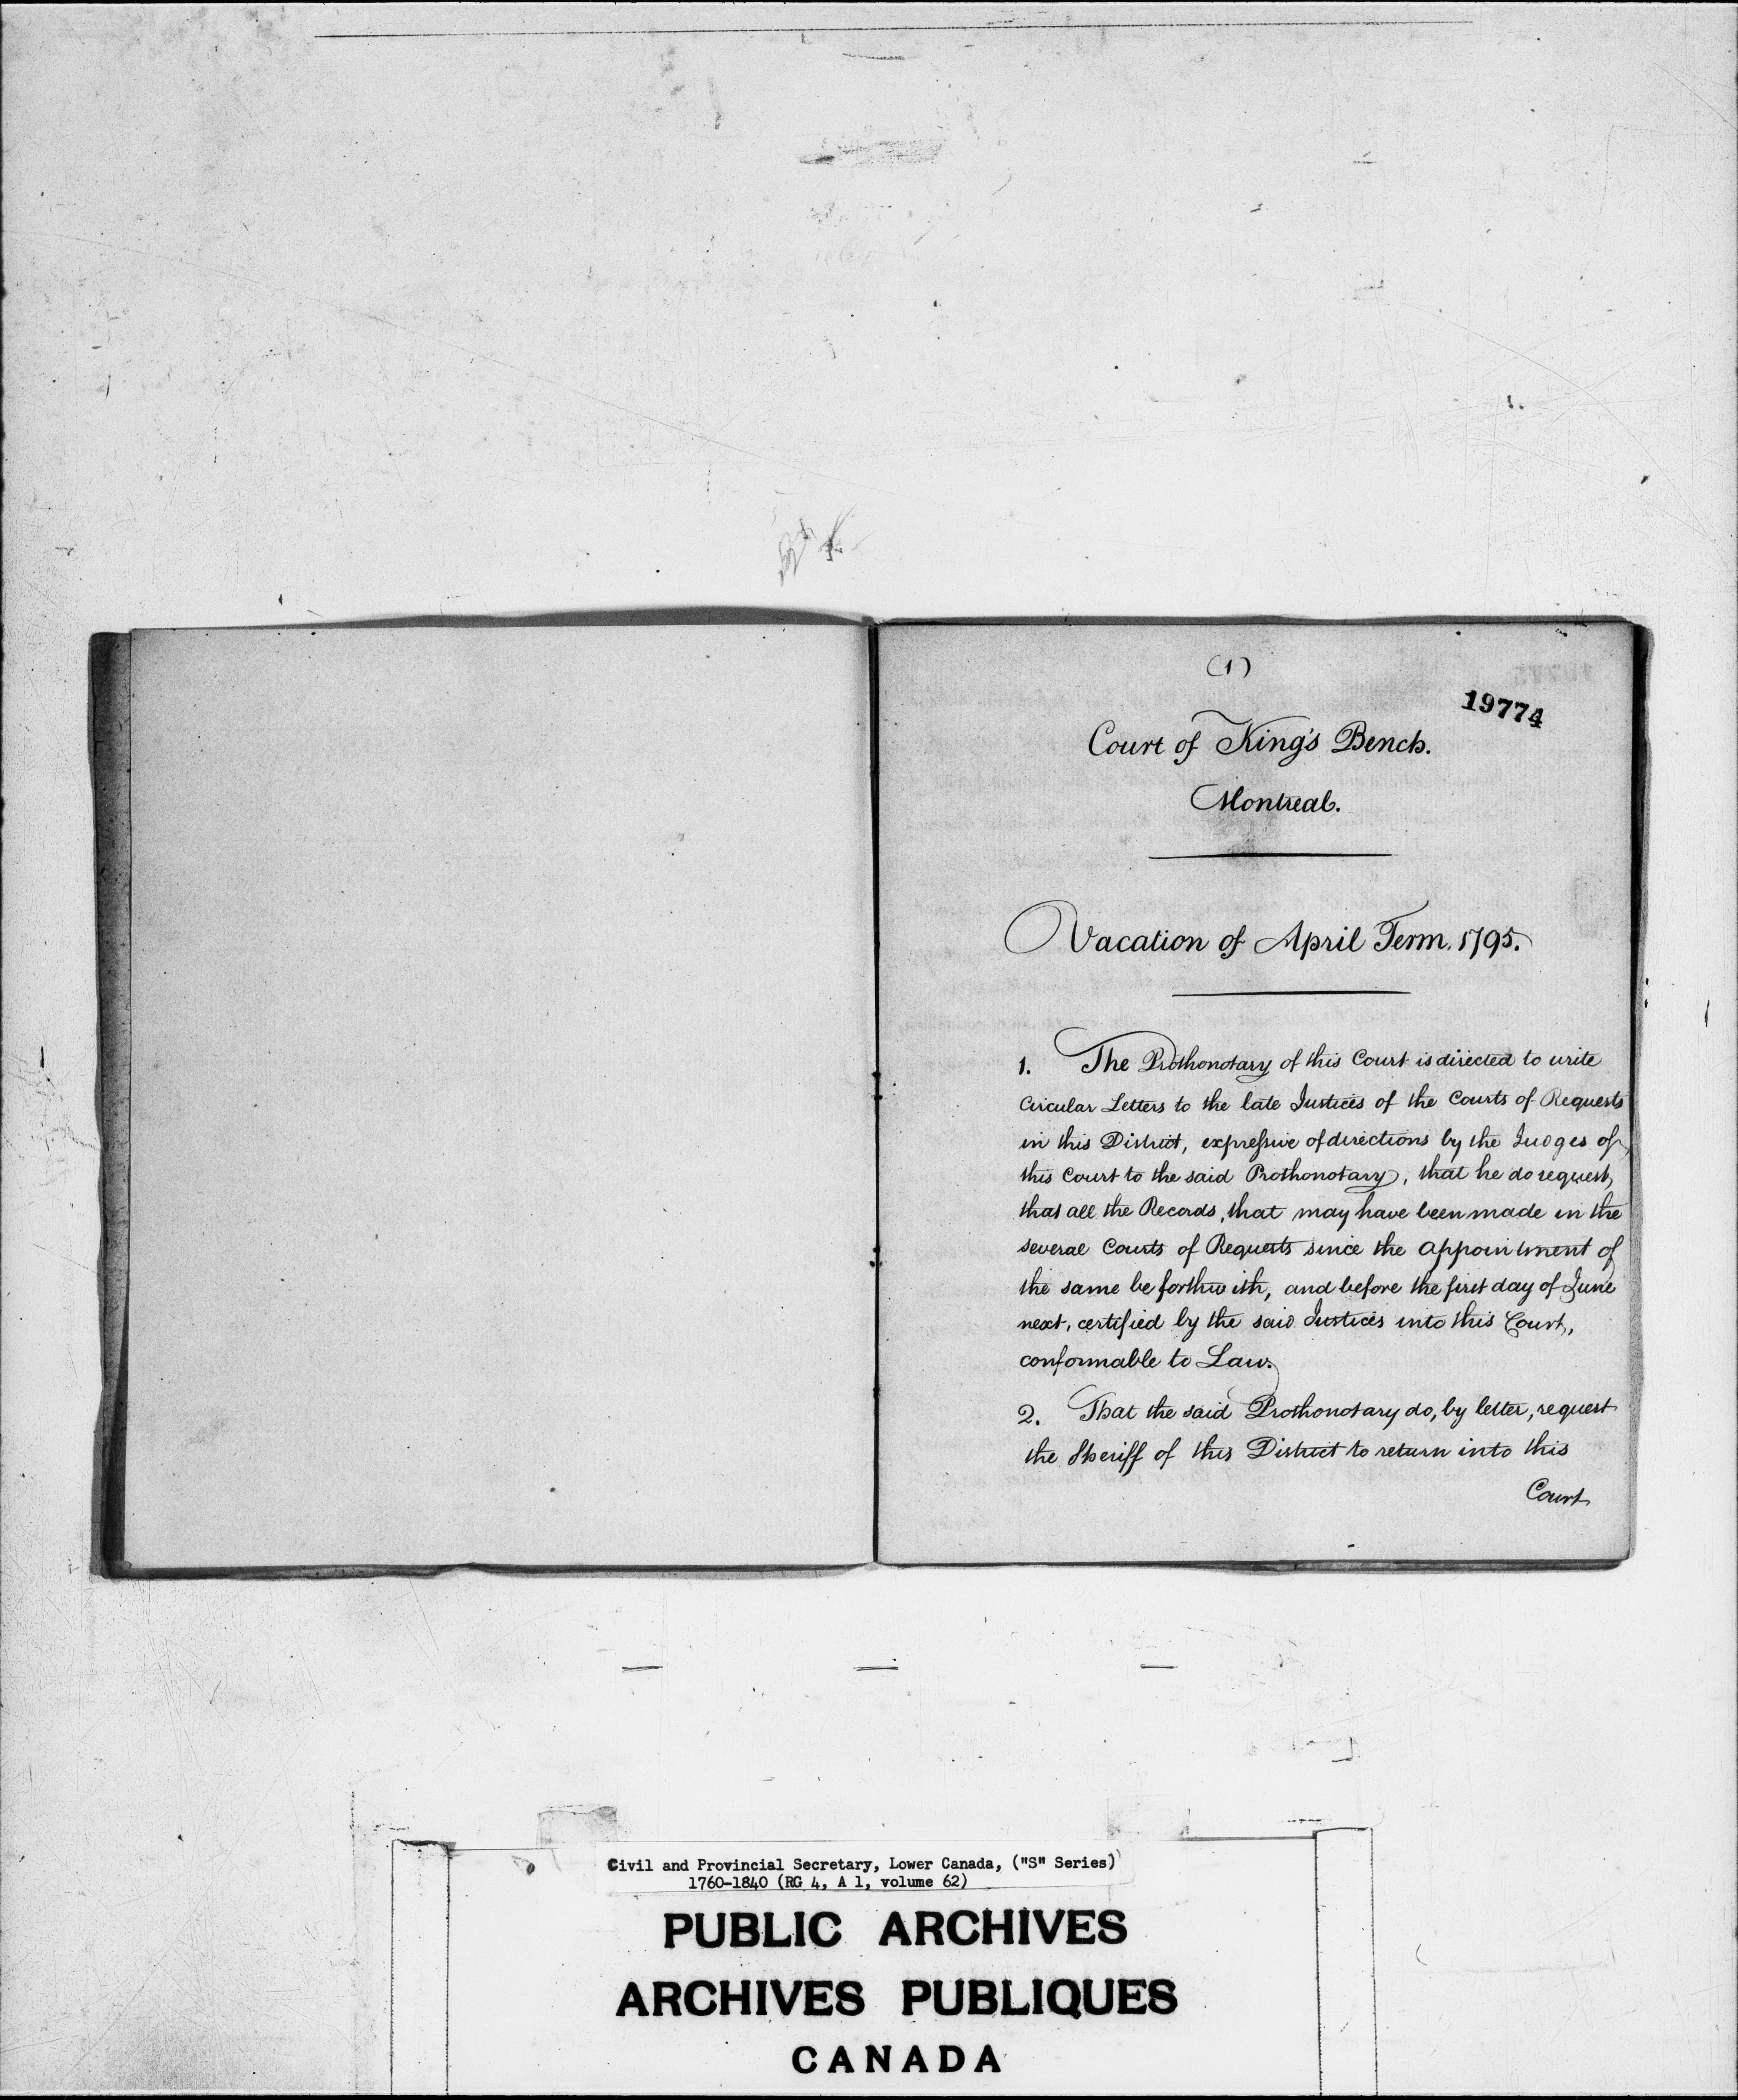 (1)
19774
Court of King's Bench.
Montreal.
Vacation of April Term. 1795.
1. The Prothonotary of this Court is directed to write
Circular Letters to the late Justices of the Courts of Requests
in this District, expressive of directions by the Judges of
this Court to the said Prothonotary, that he do request,
that all the Records, that may have been made in the
several Courts of Requests since the appointment of
the same be forthwith, and before the first day of June
next, certified by the said Justices into this Court,
conformable to Law.
2. That the said Prothonotary do, by letter, request
the Sheriff of this District to return into this
Court
Civil and Provincial Secretary, Lower Canada, ("S" Series)
1760-1840 (RG 4, A 1, volume 62)
PUBLIC ARCHIVES
ARCHIVES PUBLIQUES
CANADA